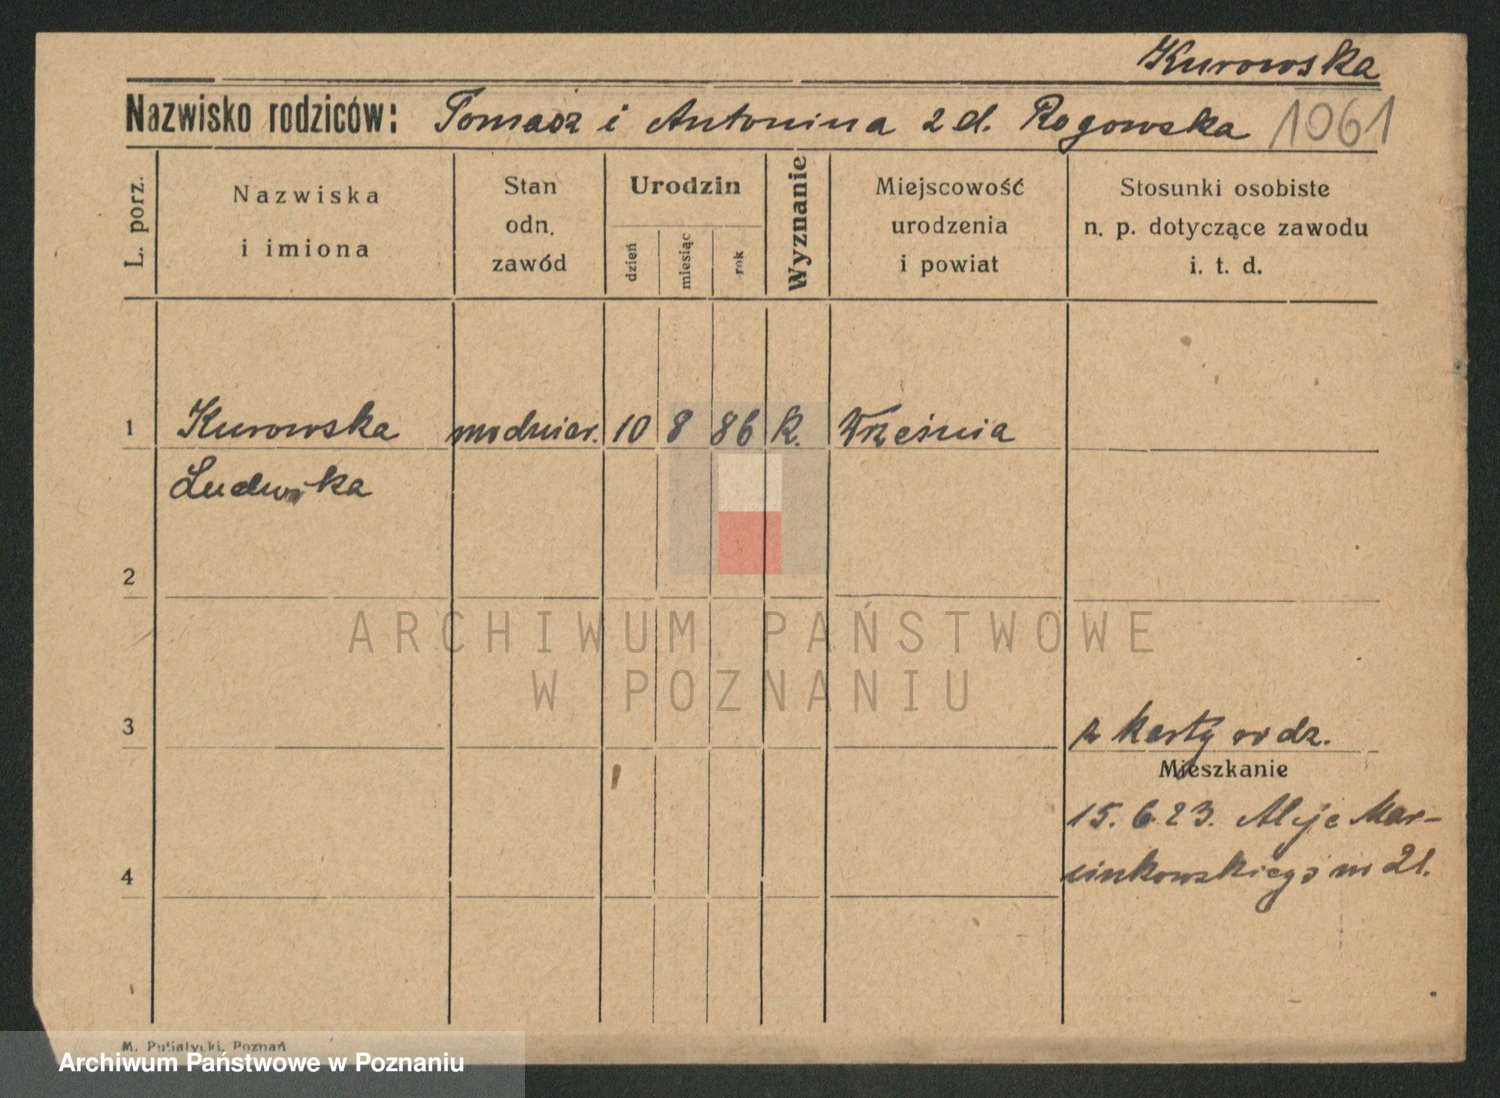 Kurowska
Nazwisko rodziców: Tomasz i Antonina 2 d. Rogowska 1061
L. porz.
Nazwiska
i imiona
Stan
odn.
zawód
Urodzin
dzień
miesiąc
rok
Wyznanie
Miejscowość
urodzenia
i powiat
Stosunki osobiste
n. p. dotyczące zawodu
i. t. d.
1 Kurowska modniar. 10 8 86 k. Września
Ludwika
2
ARCHIWUM PAŃSTWOWE
W POZNANIU
3
z karty rodz.
Mieszkanie
15. 6. 23. Aleje Mar-
4
cinkowskiego nr 21.
M. Putiatycki, Poznań
Archiwum Państwowe w Poznaniu